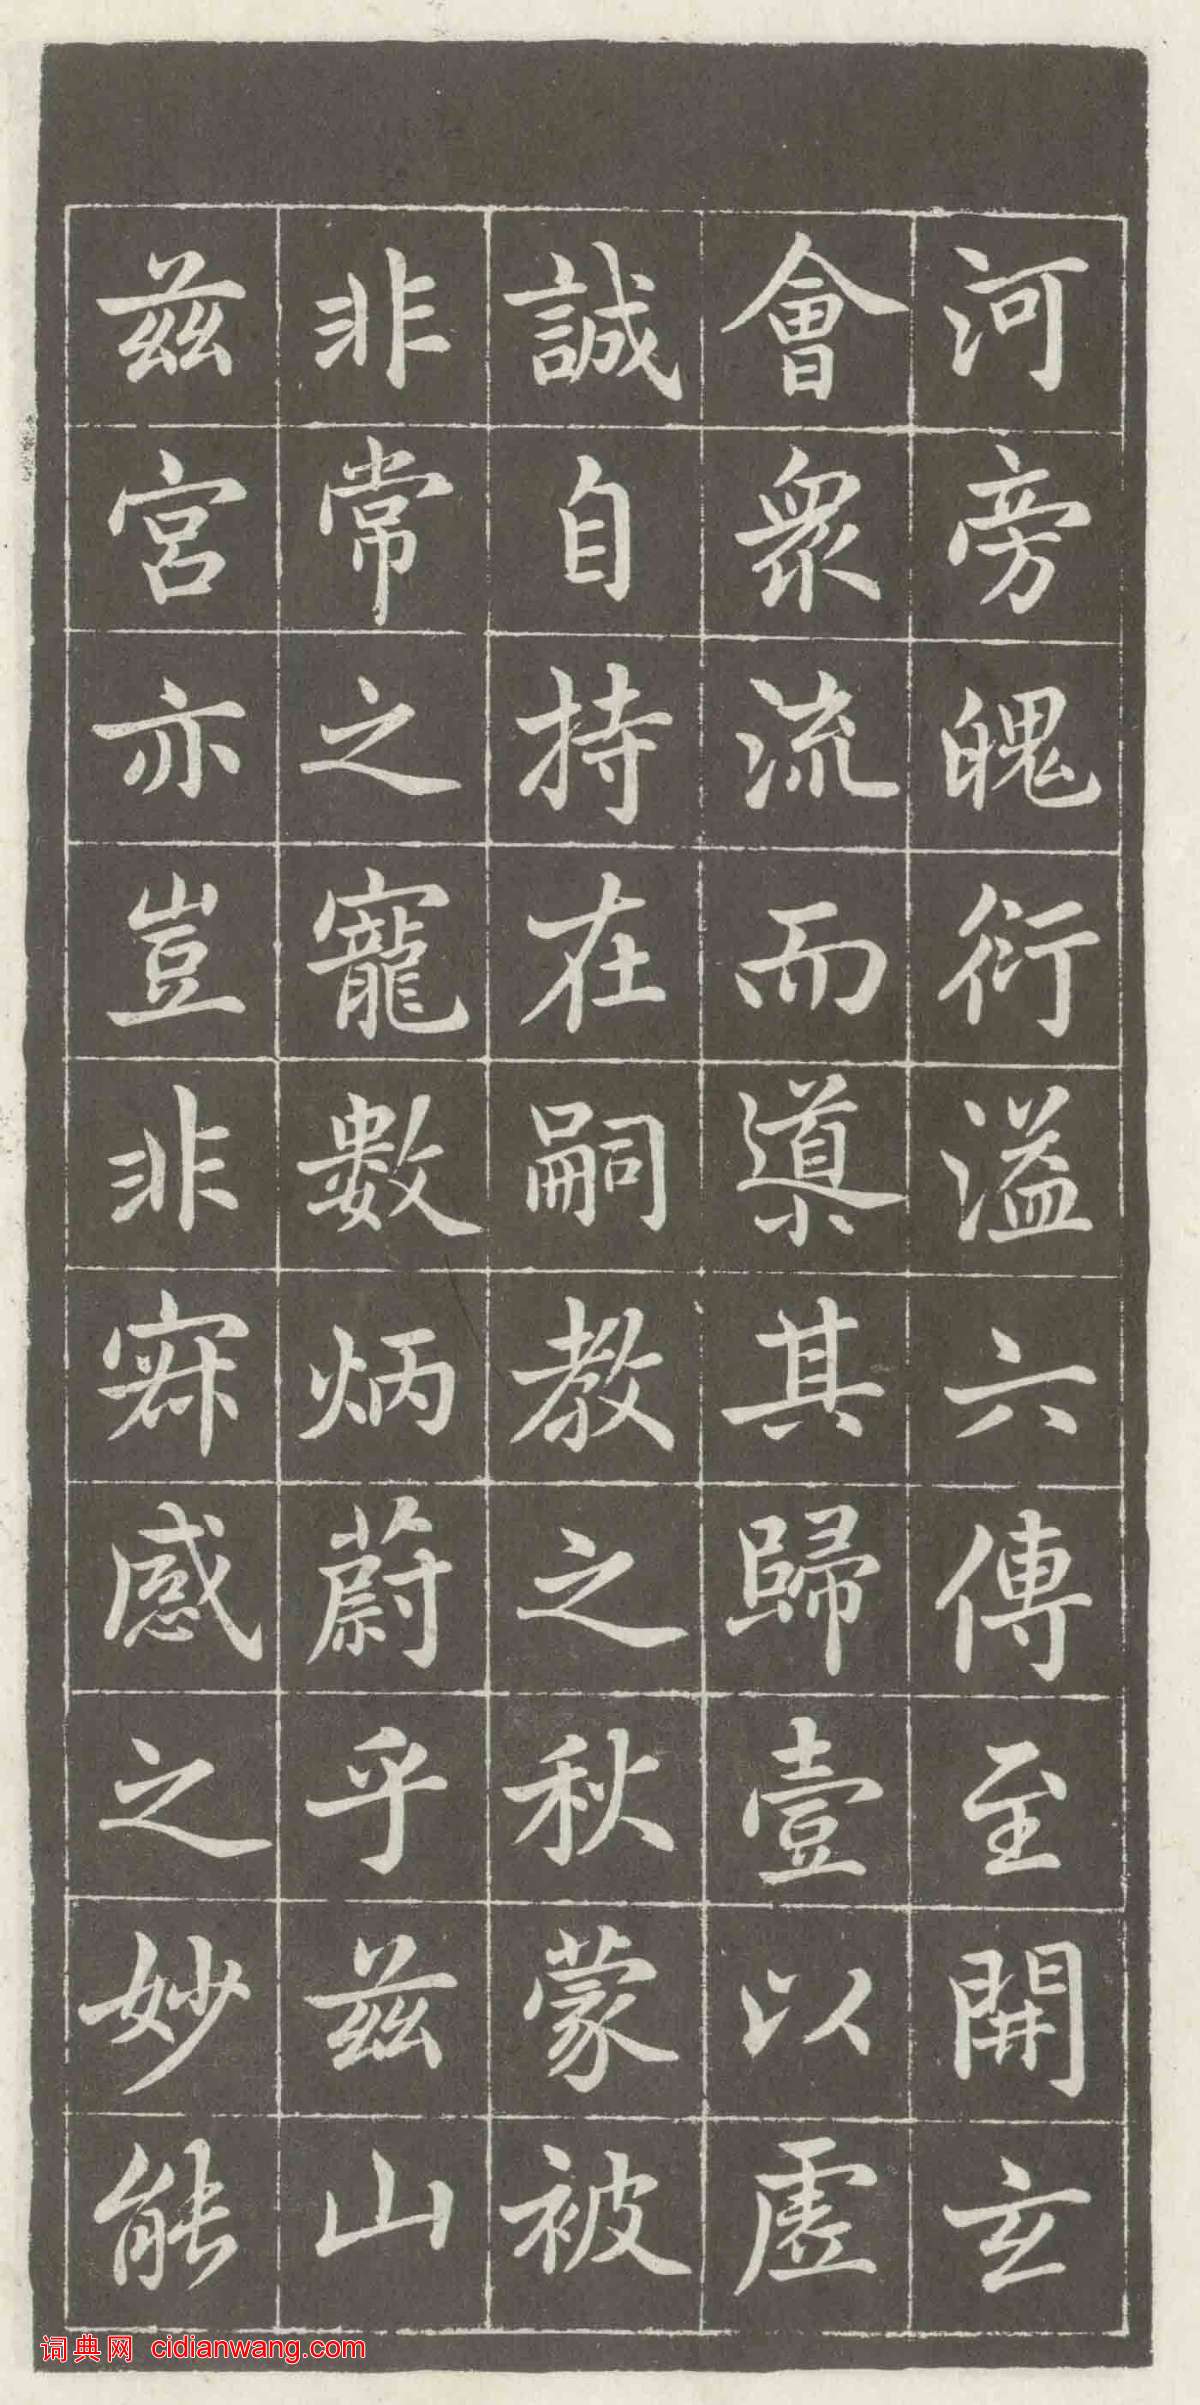 河旁魄衍溢六傳至開玄
會眾流而導其歸壹以虛
誠自持在嗣教之秋蒙被
非常之寵數炳蔚乎茲山
茲宮亦豈非寂感之妙能
词典网 cidianwang.com